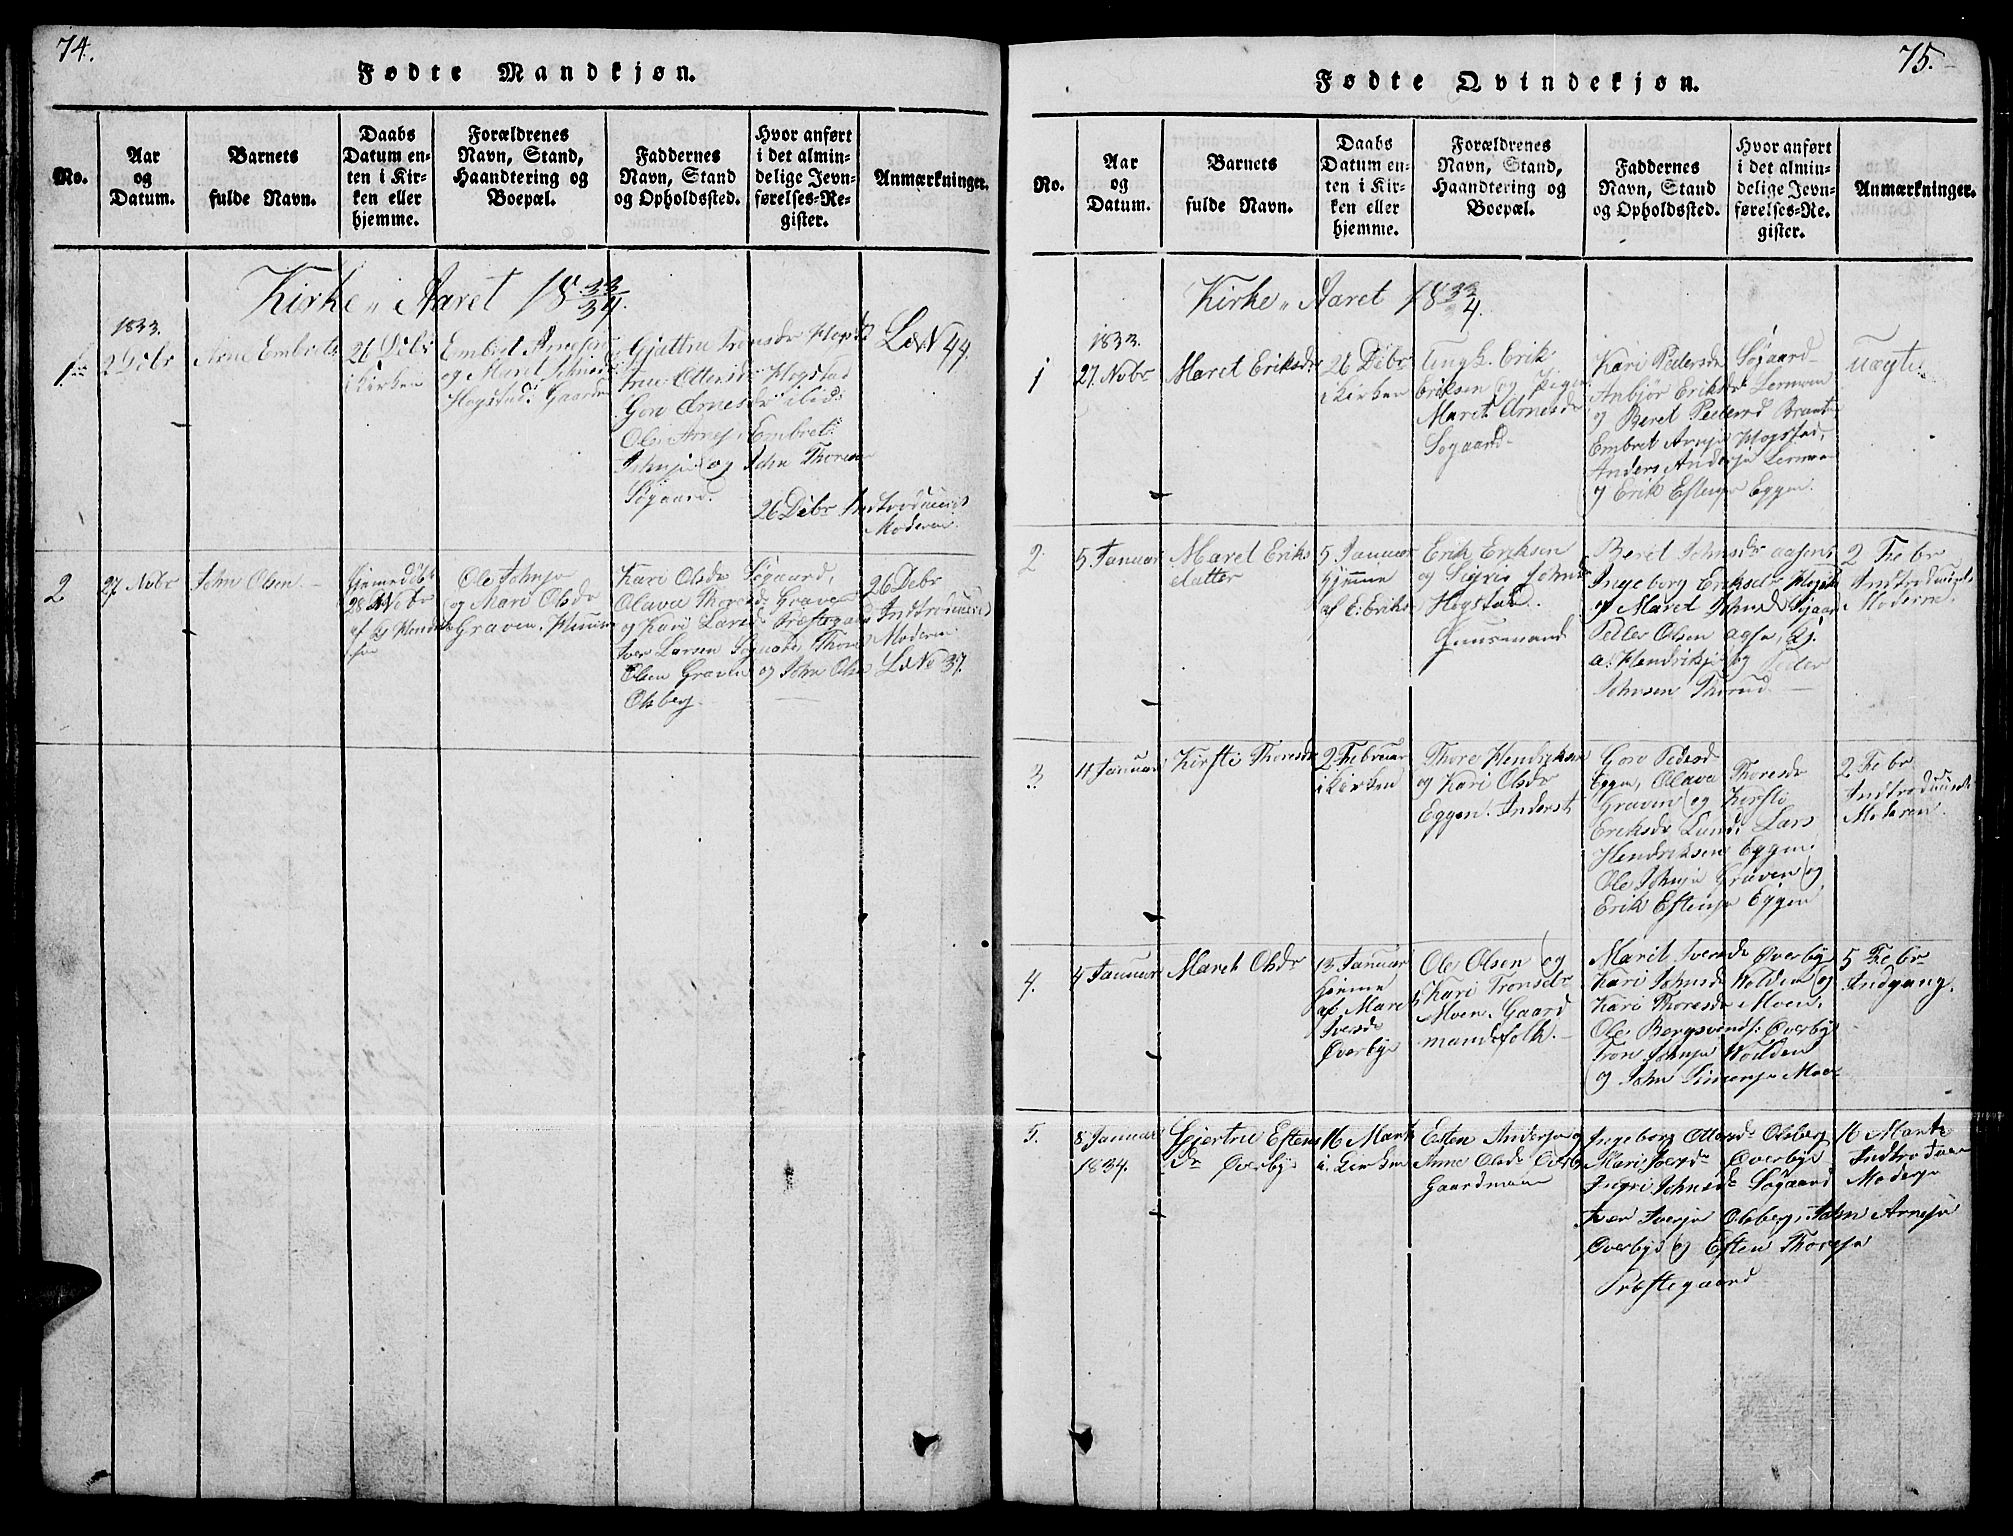 74.
Fødte Mandkjøn.
No.
Aar
og
Datum.
Barnets
fulde Navn.
Daabs
Datum en-
ten i Kir-
ken eller
hjemme.
Forældrenes
Navn, Stand,
Haandtering og
Boepæl.
Faddernes
Navn, Stand
og Opholdssted.
Hvor anført
i det almin-
delige Jevn-
førelses-Re-
gister.
Anmærkninger.
Kirke„ Aaret 18 33/34.
1
1833.
2 Debr
Arne Embrets
26 Debr
i Kirken
Embret Arnese
og Maret
Hogstad. Gaard
Gjattru Hogst
Hogstad
Goro Arnesdr
Ole Arnes Embret
Johnse og John Thorese
Søgaard.
L. No 44.
26 Debr Introduceris
Moderen.
2
27. Nobr
John Olsen
hjemme døbt
28 Nobr
af
Ole Johnse
og Mari Olsdr
Graven.
Kari Olsdr Søgaard,
Olava Thoresdr Graven
og Kari Larsd Præstegaa
Iver Larsen Thore
Olsen Graven og John Olse
Olsberg.
26 Debr
Introduceris
Moderen
L. No 37.
75.
Fødte Qvindekjøn.
No.
Aar
og
Datum.
Barnets
fulde Navn.
Daabs
Datum en-
ten i Kir-
ken eller
hjemme.
Forældrenes
Navn, Stand,
Haandtering og
Boepæl.
Faddernes
Navn, Stand
og Opholdssted.
Hvor anført
i det almin-
delige Jevn-
førelses-Re-
gister.
Anmærkninger.
Kirke„ Aaret 18 33/4.
1
1833.
27. Nobr
Maret Eriksdr
26 Debr
i Kirken
Ungk. Erik
Eriksen og Pigen
Maret Arnesdr
Søgaard
Kari Pedersdr Søgaard
Anbjør Eriksdr Lermoen
og Beret Pedersd
Embret Arnse Hogstad,
Anders Anderse Lermoe
og Erik Estense Eggen.
uægte
2
5 Januar
Maret Eriks
datter
5 Januar
hjemme
af E: Eriks
Erik Eriksen
og Sigrie Johnsd
Hogstad.
Huusmand
Beret Johnsdr aasen
Ingeborg Eriksdr Hogst
og Maret Johnsd Søgaar
Peder Olsen aase,
a. Hendrikse og Peder
Johnsen Thorud
2 Febr
Introduceris
Moderen.
3
4 Januar
Kirsti Thoresdr
2 Februar
i Kirken
Thore Hendriksen
og Kari Olsdr
Eggen. Inderst
Goro Pedersd
Eggen, Olava Thoresdr
Graven og Kirsti
Eriksdr Lund. Lars
Hendriksen Eggen.
Ole Johnse Graven og
Erik Estense Eggen
2 Febr
Introduceris
Moderen.
4.
4 Januar
Maret Olsdr
13 Januar
hjemme
af Mari
Iversdr
Øverbye
Ole Olsen og
Kari Tronsdr
Moen. Gaard
mandsfolk.
Marit Iversdr Øverbye
Kari Johnsdr Volden og
Kari Thoresdr Moen,
Ole Bergsvends. Øverbye
Tron Johnse Wolden
og John Simense Moe
5 Febr
Indgang.
5.
8 Januar
1834.
Gjertru Estens
dr Øverbye
16 Marts
i Kirken
Esten Anderse og
Anne Olsdr Øverby
Gaardmænd
Ingeborg Ottersdr Olsberg
Mari Iversdr Øverbye
Ingri Johnsdr Søgaard
Iver Iverse Olsberg, John Arnese
Øverbye og Esten Thorese
Præstegaard
16 Marts
Introducer
Modere